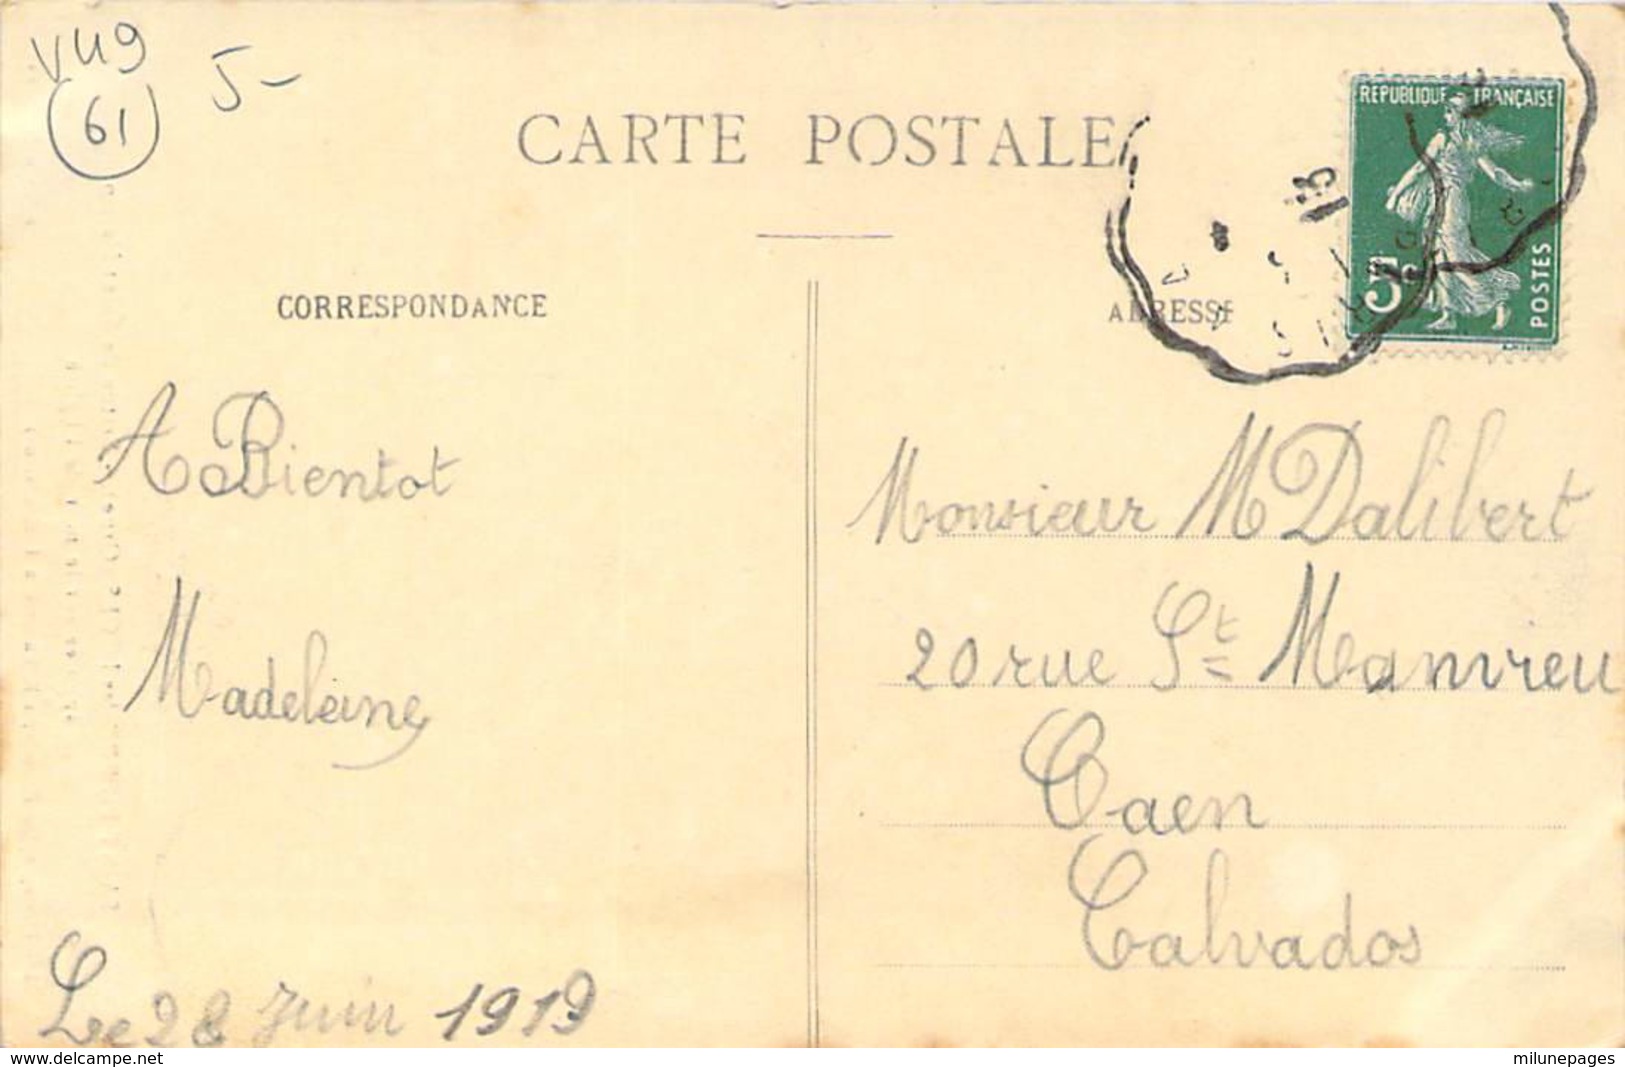 VU9
61
5-
CARTE POSTALE
REPUBLIQUE FRANÇAISE
13
5c
POSTES
CORRESPONDANCE
ADRESSE
A Bientot
Madeleine
Le 28 Juin 1913
Monsieur M Dalibert
20 rue St Manvieu
Caen
Calvados
www.delcampe.net
milunepages